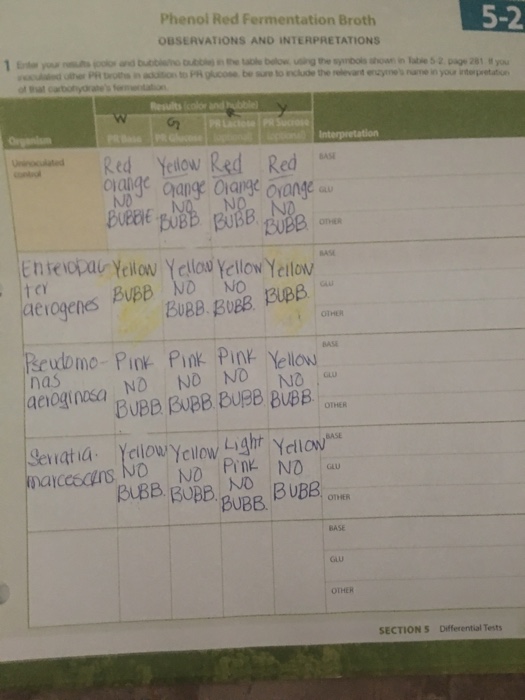 Phenol Red Fermentation Broth
5-2
OBSERVATIONS AND INTERPRETATIONS
1 Enter your results (color and bubble/no bubble) in the table below, using the symbols shown in Table 5-2, page 281. If you
inoculated other PR broths in addition to PR glucose, be sure to include the relevant enzyme's name in your interpretation
of that carbohydrate's fermentation.
Results (color and bubble)
W G Y
Organism PR Base PR Glucose PR Lactose (optional) PR Sucrose (optional) Interpretation
Uninoculated Red Yellow Red Red BASE
control orange orange Orange Orange GLU
NO NO NO NO
BUBBLE BUBB. BUBB. BUBB. OTHER
Enterobac Yellow Yellow Yellow Yellow BASE
ter BUBB NO NO BUBB. GLU
aerogenes BUBB. BUBB. OTHER
Pseudomo- Pink Pink Pink Yellow BASE
nas NO NO NO NO GLU
aeroginosa BUBB. BUBB. BUBB. BUBB. OTHER
Serratia Yellow Yellow Light Yellow BASE
marcescens NO NO Pink NO GLU
BUBB. BUBB. NO BUBB. OTHER
BUBB.
BASE
GLU
OTHER
SECTION 5 Differential Tests